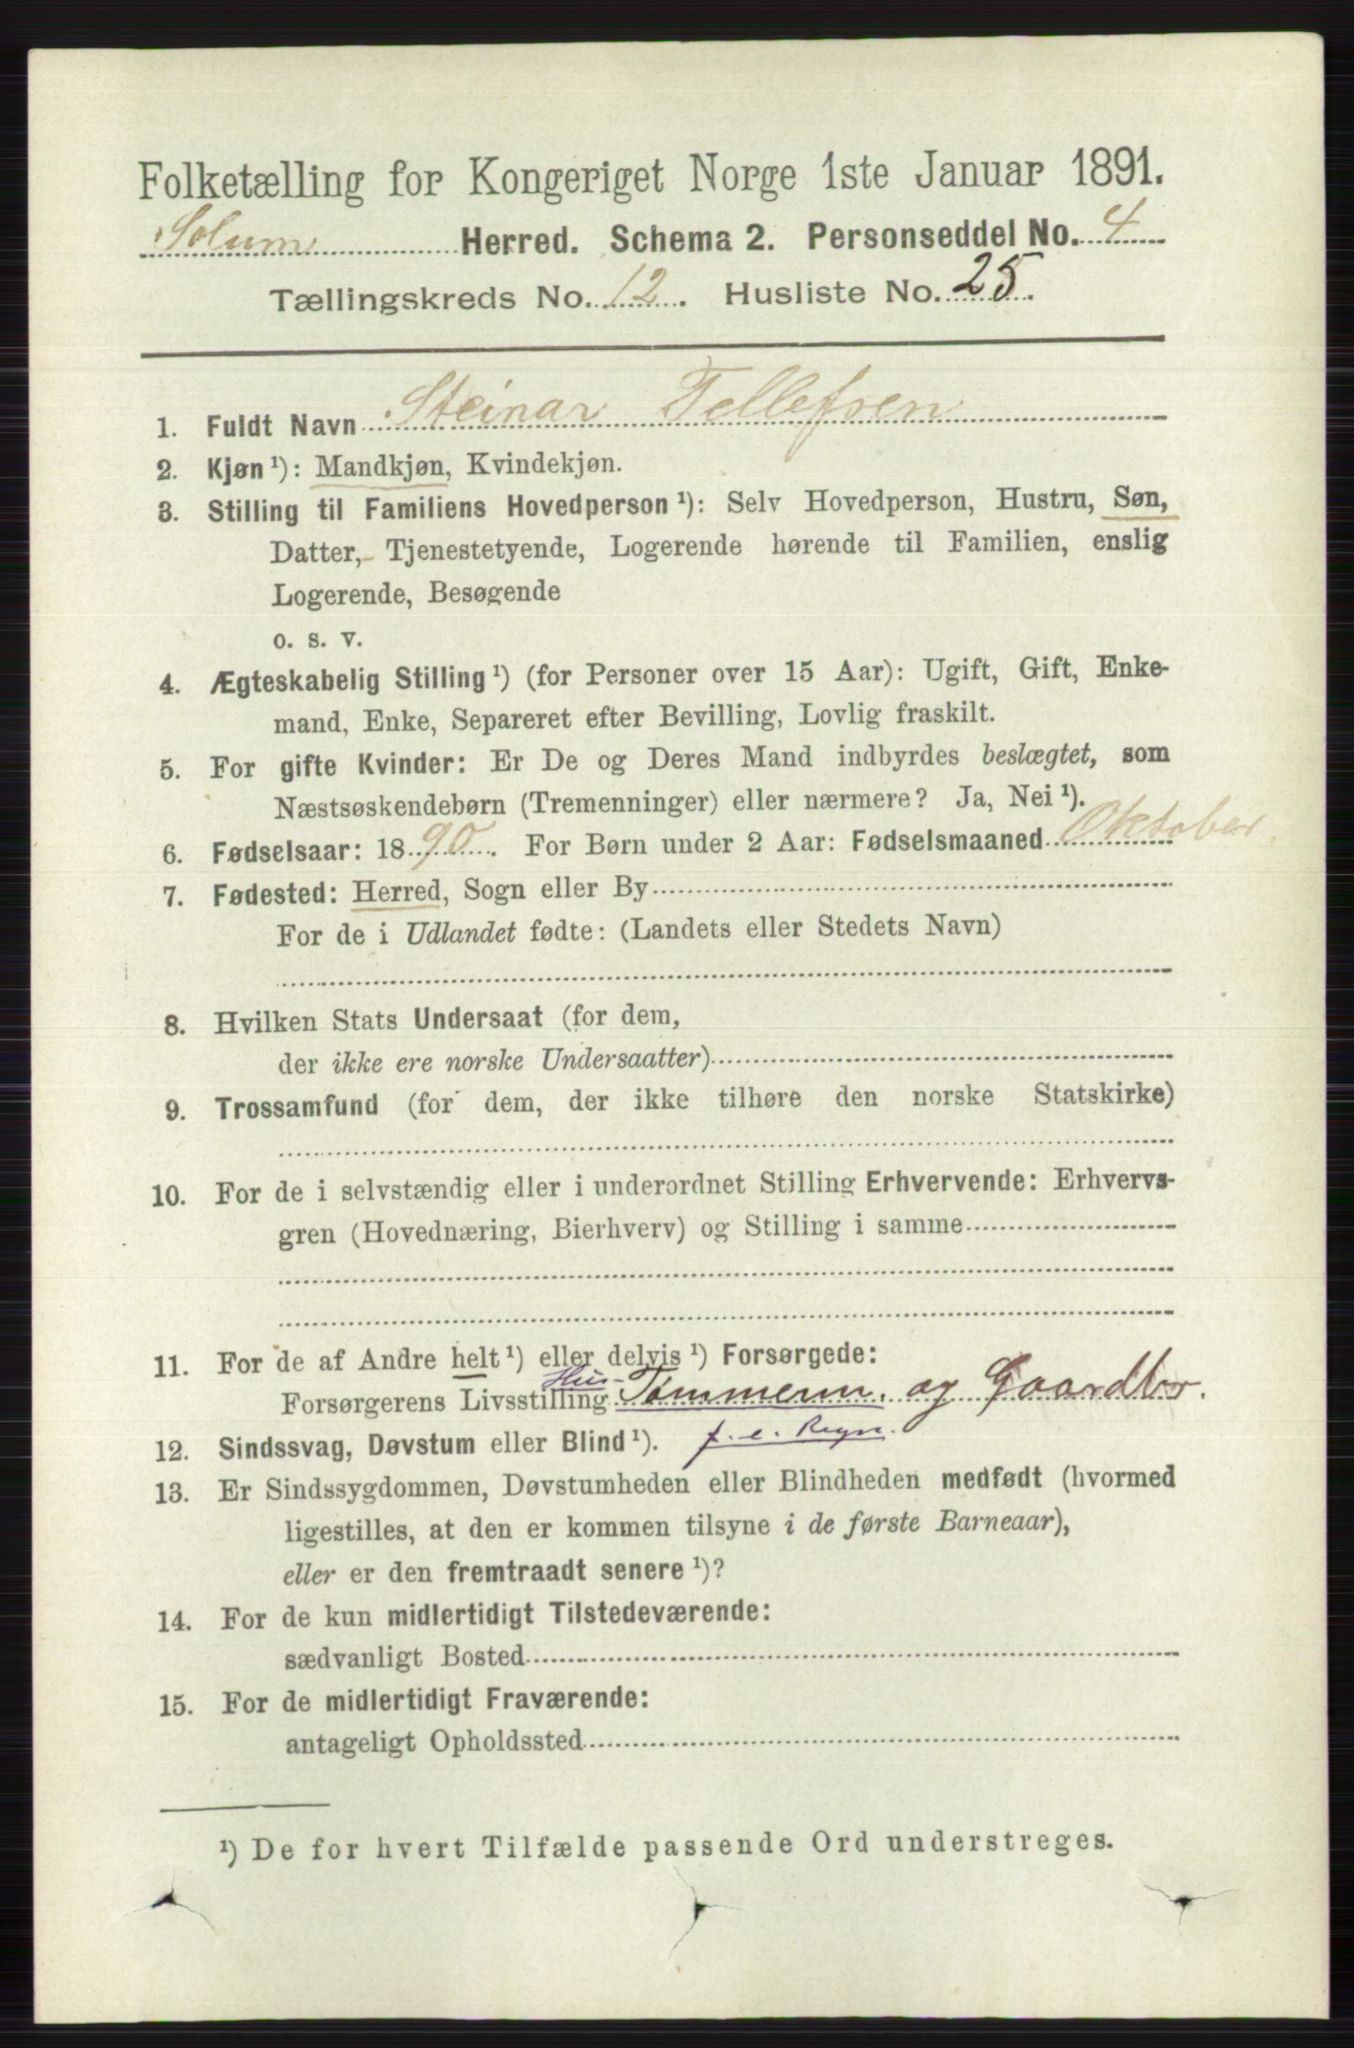 Folketælling for Kongeriget Norge 1ste Januar 1891.
Solum Herred. Schema 2. Personseddel No. 4
Tællingskreds No. 12. Husliste No. 25.
1. Fuldt Navn Steinar Tellefsen
2. Kjøn ¹): Mandkjøn, Kvindekjøn.
3. Stilling til Familiens Hovedperson ¹): Selv Hovedperson, Hustru, Søn,
Datter, Tjenestetyende, Logerende hørende til Familien, enslig
Logerende, Besøgende
o. s. v.
4. Ægteskabelig Stilling ¹) (for Personer over 15 Aar): Ugift, Gift, Enke-
mand, Enke, Separeret efter Bevilling, Lovlig fraskilt.
5. For gifte Kvinder: Er De og Deres Mand indbyrdes beslægtet, som
Næstsøskendebørn (Tremenninger) eller nærmere? Ja, Nei ¹).
6. Fødselsaar: 1890. For Børn under 2 Aar: Fødselsmaaned Oktober.
7. Fødested: Herred, Sogn eller By
For de i Udlandet fødte: (Landets eller Stedets Navn)
8. Hvilken Stats Undersaat (for dem,
der ikke ere norske Undersaatter)
9. Trossamfund (for dem, der ikke tilhøre den norske Statskirke)
10. For de i selvstændig eller i underordnet Stilling Erhvervende: Erhvervs-
gren (Hovednæring, Bierhverv) og Stilling i samme
11. For de af Andre helt ¹) eller delvis ¹) Forsørgede:
Forsørgerens Livsstilling Hus- Tømmerm. og Gaardbr.
12. Sindssvag, Døvstum eller Blind ¹). f. e. Regn.
13. Er Sindssygdommen, Døvstumheden eller Blindheden medfødt (hvormed
ligestilles, at den er kommen tilsyne i de første Barneaar),
eller er den fremtraadt senere ¹)?
14. For de kun midlertidigt Tilstedeværende:
sædvanligt Bosted
15. For de midlertidigt Fraværende:
antageligt Opholdssted
¹) De for hvert Tilfælde passende Ord understreges.